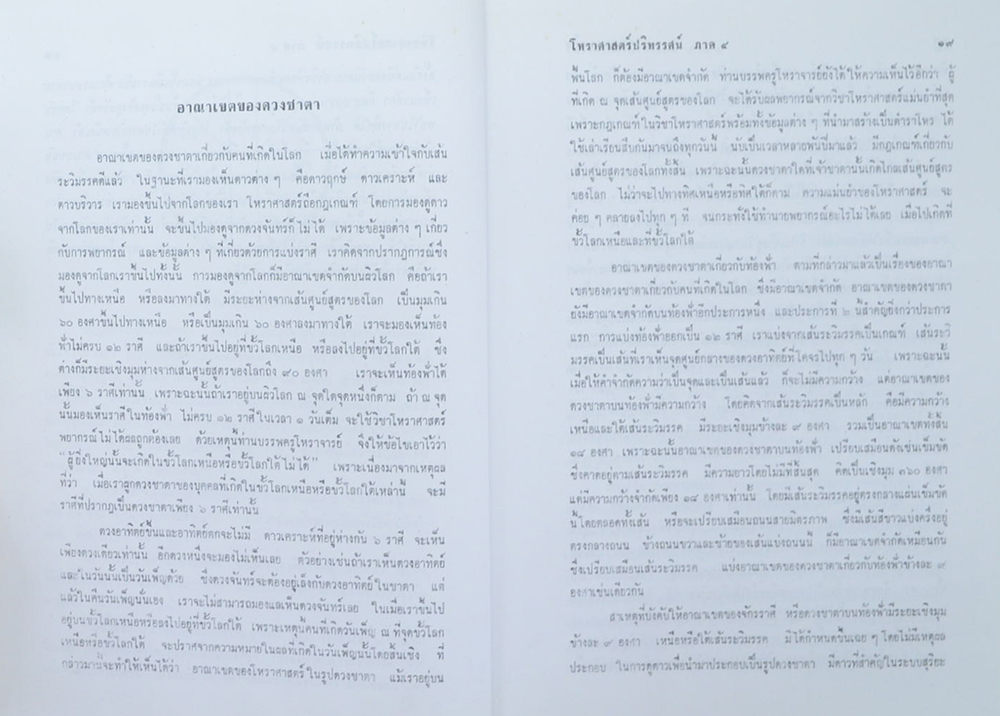 อาณาเขตของดวงชาตา
อาณาเขตของดวงชาตาเกี่ยวกับคนที่เกิดในโลก เมื่อได้ทำความเข้าใจกับเส้น
ระวิมรรคดีแล้ว ในฐานะที่เรามองเห็นดาวต่าง ๆ คือดาวฤกษ์ ดาวเคราะห์ และ
ดาวบริวาร เรามองขึ้นไปจากโลกของเรา โหราศาสตร์ถือกฎเกณฑ์ โดยการมองดูดาว
จากโลกของเราเท่านั้น จะขึ้นไปมองดูจากดวงจันทร์ก็ไม่ได้ เพราะข้อมูลต่าง ๆ เกี่ยว
กับการพยากรณ์ และข้อมูลต่าง ๆ ที่เกี่ยวด้วยการแบ่งราศี เราคิดจากปรากฏการณ์ซึ่ง
มองดูจากโลกเราขึ้นไปทั้งนั้น การมองดูจากโลกก็มีอาณาเขตจำกัดบนผิวโลก คือถ้าเรา
ขึ้นไปทางเหนือ หรือลงมาทางใต้ มีระยะห่างจากเส้นศูนย์สูตรของโลก เป็นมุมเกิน
๖๐ องศาขึ้นไปทางเหนือ หรือเป็นมุมเกิน ๖๐ องศาลงมาทางใต้ เราจะมองเห็นท้อง
ฟ้าไม่ครบ ๑๒ ราศี และถ้าเราขึ้นไปอยู่ที่ขั้วโลกเหนือ หรือลงไปอยู่ที่ขั้วโลกใต้ ซึ่ง
ต่างก็มีระยะเชิงมุมห่างจากเส้นศูนย์สูตรของโลกถึง ๙๐ องศา เราจะเห็นท้องฟ้าได้
เพียง ๖ ราศีเท่านั้น เพราะฉะนั้นถ้าเราอยู่บนผิวโลก ณ จุดใดจุดหนึ่งก็ตาม ถ้า ณ จุด
นั้นมองเห็นราศีในท้องฟ้า ไม่ครบ ๑๒ ราศีในเวลา ๑ วันเต็ม จะใช้วิชาโหราศาสตร์
พยากรณ์ไม่ได้ผลถูกต้องเลย ด้วยเหตุนี้ท่านบรรพครูโหราจารย์ จึงให้ข้อไขเอาไว้ว่า
"ผู้ยิ่งใหญ่นั้นจะเกิดในขั้วโลกเหนือหรือขั้วโลกใต้ไม่ได้" เพราะเนื่องมาจากเหตุผล
ที่ว่า เมื่อเราผูกดวงชาตาของบุคคลที่เกิดในขั้วโลกเหนือหรือขั้วโลกใต้เหล่านี้ จะมี
ราศีที่ปรากฏเป็นดวงชาตาเพียง ๖ ราศีเท่านั้น
ดวงอาทิตย์ขึ้นและอาทิตย์ตกจะไม่มี ดาวเคราะห์ที่อยู่ห่างกัน ๖ ราศี จะเห็น
เพียงดวงเดียวเท่านั้น อีกดวงหนึ่งจะมองไม่เห็นเลย ตัวอย่างเช่นถ้าเราเห็นดวงอาทิตย์
และในวันนั้นเป็นวันเพ็ญด้วย ซึ่งดวงจันทร์จะต้องอยู่เล็งกับดวงอาทิตย์ในชาตา แต่
แล้วในคืนวันเพ็ญนั่นเอง เราจะไม่สามารถมองแลเห็นดวงจันทร์เลย ในเมื่อเราขึ้นไป
อยู่บนขั้วโลกเหนือหรือลงไปอยู่ที่ขั้วโลกใต้ เพราะเหตุนี้คนที่เกิดวันเพ็ญ ณ ที่จุดขั้วโลก
เหนือหรือขั้วโลกใต้ จะปราศจากความหมายในผลที่เกิดในวันเพ็ญนั้นโดยสิ้นเชิง ที่
กล่าวมานี้จะทำให้เห็นได้ว่า อาณาเขตของโหราศาสตร์ในรูปดวงชาตา แม้เราอยู่บน
โหราศาสตร์ปริทรรศน์ ภาค ๔ ๑๙
พื้นโลก ก็ต้องมีอาณาเขตจำกัด ท่านบรรพครูโหราจารย์ยังได้ให้ความเห็นไว้อีกว่า ผู้
ที่เกิด ณ จุดเส้นศูนย์สูตรของโลก จะได้รับผลพยากรณ์จากวิชาโหราศาสตร์แม่นยำที่สุด
เพราะกฎเกณฑ์ในวิชาโหราศาสตร์พร้อมทั้งข้อมูลต่าง ๆ ที่นำมาสร้างเป็นตำราโหร ได้
ใช้เล่าเรียนสืบกันมาจนถึงทุกวันนี้ นับเป็นเวลาหลายพันปีมาแล้ว มีกฎเกณฑ์เกี่ยวกับ
เส้นศูนย์สูตรของโลกทั้งสิ้น เพราะฉะนั้นดวงชาตาใดที่เจ้าชาตานั้นเกิดไกลเส้นศูนย์สูตร
ของโลก ไม่ว่าจะไปทางทิศเหนือหรือทิศใต้ก็ตาม ความแม่นยำของโหราศาสตร์ จะ
ค่อย ๆ คลายลงไปทุก ๆ ที จนกระทั่งใช้ทำนายพยากรณ์อะไรไม่ได้เลย เมื่อไปเกิดที่
ขั้วโลกเหนือและที่ขั้วโลกใต้
อาณาเขตของดวงชาตาเกี่ยวกับท้องฟ้า ตามที่กล่าวมาแล้วเป็นเรื่องของอาณา
เขตของดวงชาตาเกี่ยวกับคนที่เกิดในโลก ซึ่งมีอาณาเขตจำกัด อาณาเขตของดวงชาตา
ยังมีอาณาเขตจำกัดบนท้องฟ้าอีกประการหนึ่ง และประการที่ ๒ นี้สำคัญยิ่งกว่าประการ
แรก การแบ่งท้องฟ้าออกเป็น ๑๒ ราศี เราแบ่งจากเส้นระวิมรรคเป็นเกณฑ์ เส้นระวิ
มรรคเป็นเส้นที่เราเห็นจุดศูนย์กลางของดวงอาทิตย์ที่โคจรไปทุก ๆ วัน เพราะฉะนั้น
เมื่อให้คำจำกัดความว่าเป็นจุดและเป็นเส้นแล้ว ก็จะไม่มีความกว้าง แต่อาณาเขตของ
ดวงชาตาบนท้องฟ้ามีความกว้าง โดยคิดจากเส้นระวิมรรคเป็นหลัก คือมีความกว้าง
เหนือและใต้เส้นระวิมรรค มีระยะเชิงมุมข้างละ ๙ องศา รวมเป็นอาณาเขตทั้งสิ้น
๑๘ องศา เพราะฉะนั้นอาณาเขตของดวงชาตาบนท้องฟ้า เปรียบเสมือนดังเช่นเข็มขัด
ซึ่งคาดอยู่ตามเส้นระวิมรรค มีความยาวโดยไม่มีที่สิ้นสุด คิดเป็นเชิงมุม ๓๖๐ องศา
แต่มีความกว้างจำกัดเพียง ๑๘ องศาเท่านั้น โดยมีเส้นระวิมรรคอยู่ตรงกลางแผ่นเข็มขัด
นี้โดยตลอดทั้งเส้น หรือจะเปรียบเสมือนถนนสายมิตรภาพ ซึ่งมีเส้นสีขาวแบ่งครึ่งอยู่
ตรงกลางถนน ข้างถนนขวาและซ้ายของเส้นแบ่งถนนนี้ ก็มีอาณาเขตจำกัดเหมือนกัน
ซึ่งเปรียบเสมือนเส้นระวิมรรค แบ่งอาณาเขตของดวงชาตาเกี่ยวกับท้องฟ้าข้างละ ๙
องศาเช่นเดียวกัน
สาเหตุที่บังคับให้อาณาเขตของจักรราศี หรือดวงชาตาบนท้องฟ้ามีระยะเชิงมุม
ข้างละ ๙ องศา เหนือหรือใต้เส้นระวิมรรค มิได้กำหนดขึ้นเฉย ๆ โดยไม่มีเหตุผล
ประกอบ ในการดูดาวเพื่อนำมาประกอบเป็นรูปดวงชาตา มีดาวที่สำคัญในระบบสุริยะ